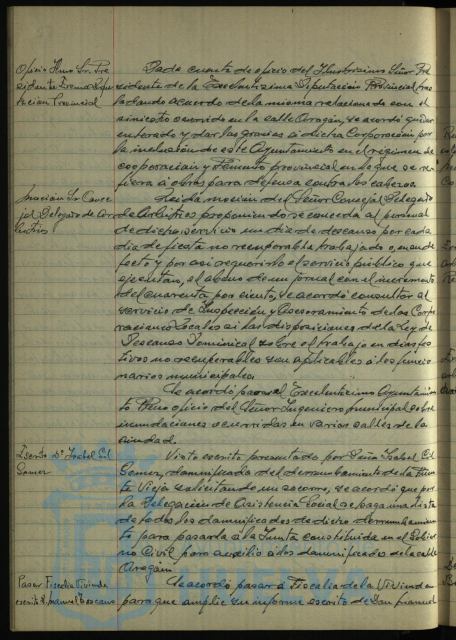 Oficio Ilmo Sr. Pre
sidente Excma Dipu
tación Provincial
Dada cuenta de oficio del Ilustrísimo Señor Pre
sidente de la Excelentísima Diputación Provincial tras
ladando acuerdo de la misma relacionado con el
siniestro ocurrido en la calle Aragón, se acordó quedar
enterado y dar las gracias a dicha Corporación por
la inclusión de este Ayuntamiento en el régimen de
cooperación y Fomento provincial en lo que se re
fiera a obras para defensa contra los cabezos.
Moción Sr Conce
jal Delegado de Ar
bitrios
Leída moción del Señor Concejal Delegado
de Arbitrios proponiendo se conceda al personal
de dicho servicio un día de descanso por cada
día de fiesta no recuperable trabajado o, en su de
fecto y por así requerirlo el servicio público que
ejecutan, el abono de un jornal con el incremento
del cuarenta por ciento, se acordó consultar al
servicio de Inspección y Asesoramiento de las Corpo
raciones Locales si las disposiciones de la Ley de
Descanso Dominical sobre el trabajo en días fes
tivos no recuperables son aplicables a los funcio
narios municipales.
Se acordó pasar al Excelentísimo Ayuntamien
to Pleno oficio del Señor Ingeniero municipal sobre
inundaciones ocurridas en varias calles de la
ciudad.
Escrito Dª Isabel Gil
Gomez
Visto escrito presentado por Doña Isabel Gil
Gomez, damnificada del derrumbamiento de la Fuen
te Vieja solicitando un socorro, se acordó que por
la Delegación de Asistencia Social se haga una lista
de todos los damnificados de dicho derrumbamien
to para pasarla a la Junta constituida en el Gobier
no Civil para auxilio a los damnificados de la calle
Aragón
Pasar Fiscalía Vivienda
escrito D. Manuel Toscano
Se acordó pasar a Fiscalía de la Vivienda
para que amplíe su informe escrito de Don Manuel